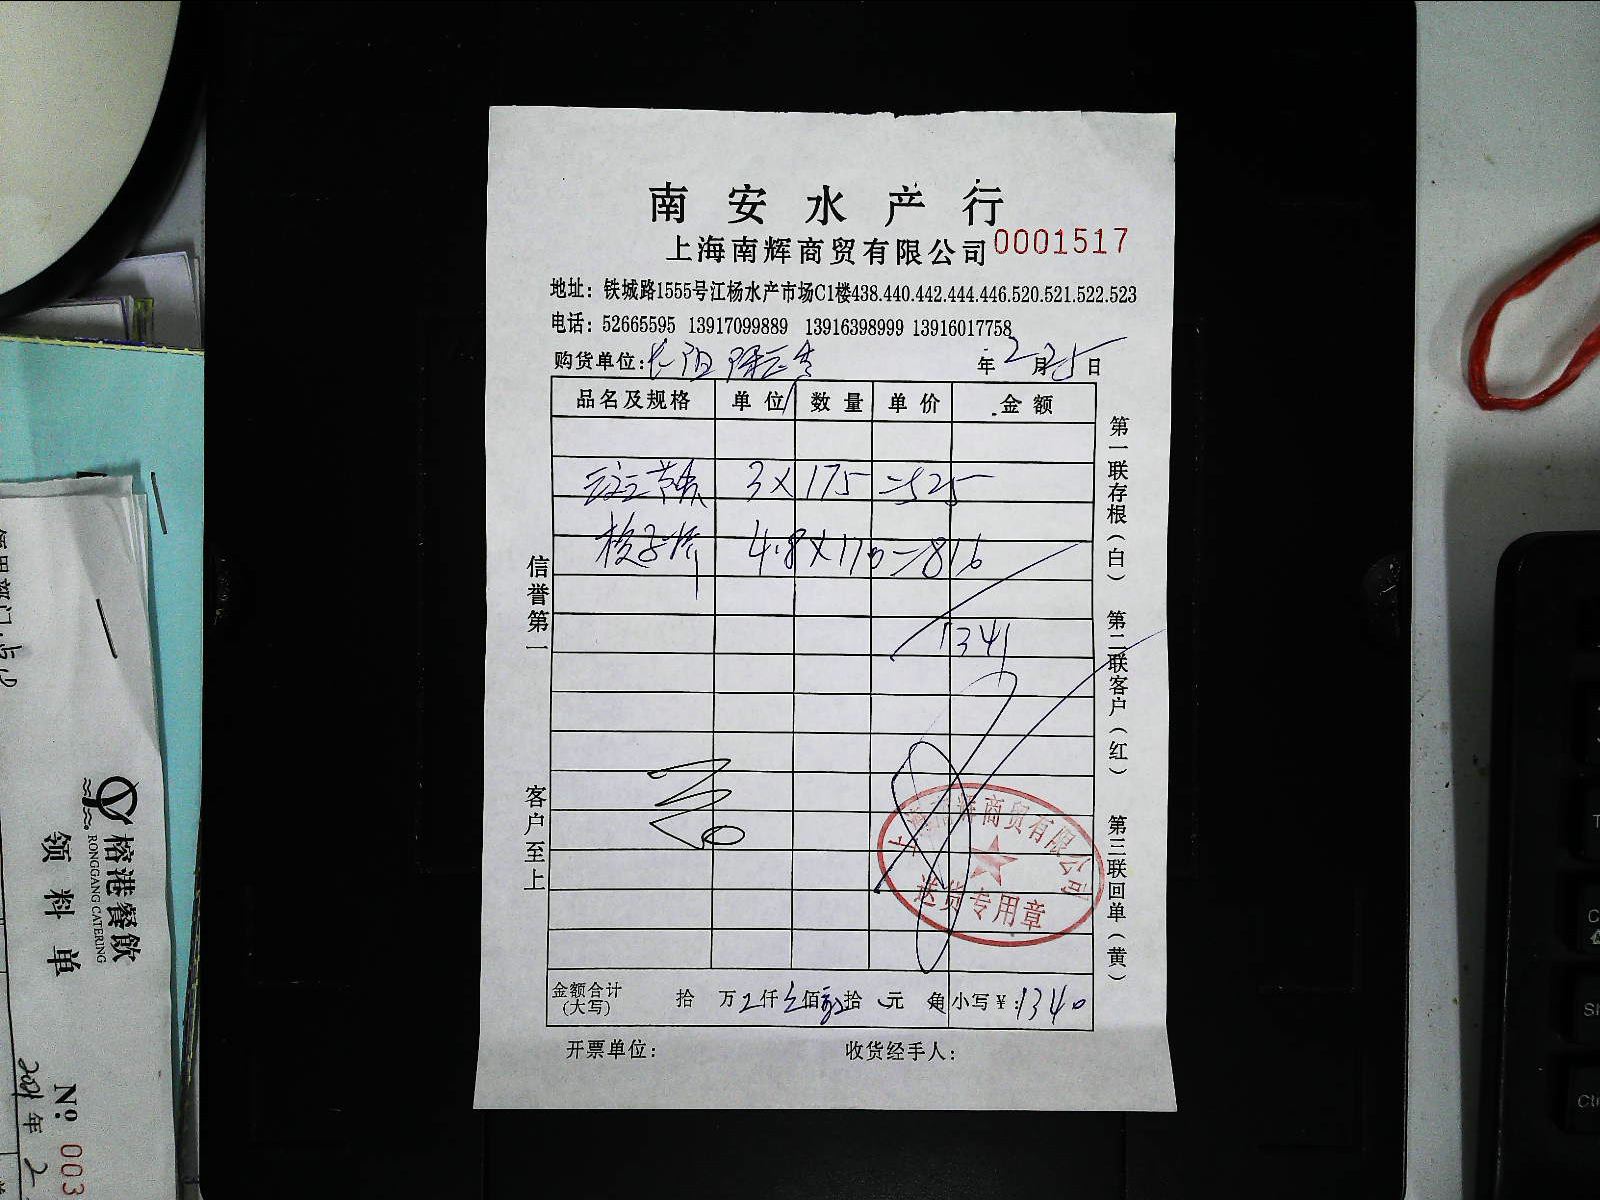 南安水产行
上海南辉商贸有限公司 0001517
地址：铁城路1555号江杨水产市场C1楼438.440.442.444.446.520.521.522.523
电话：52665595 13917099889 13916398999 13916017758
购货单位: 年 2 月 25 日
品名及规格 单位 数量 单价 金额
3 × 175 = 525
4.8 × 170 = 816
1341
信誉第一
客户至上
第一联存根（白） 第二联客户（红） 第三联回单（黄）
上海南辉商贸有限公司
送货专用章
金额合计
(大写)
拾 万 仟 佰 拾 元 角 小写￥: 1340
开票单位： 收货经手人：
榕港餐飲
RONGGANG CATERING
领料单
№ 003
2021年 2